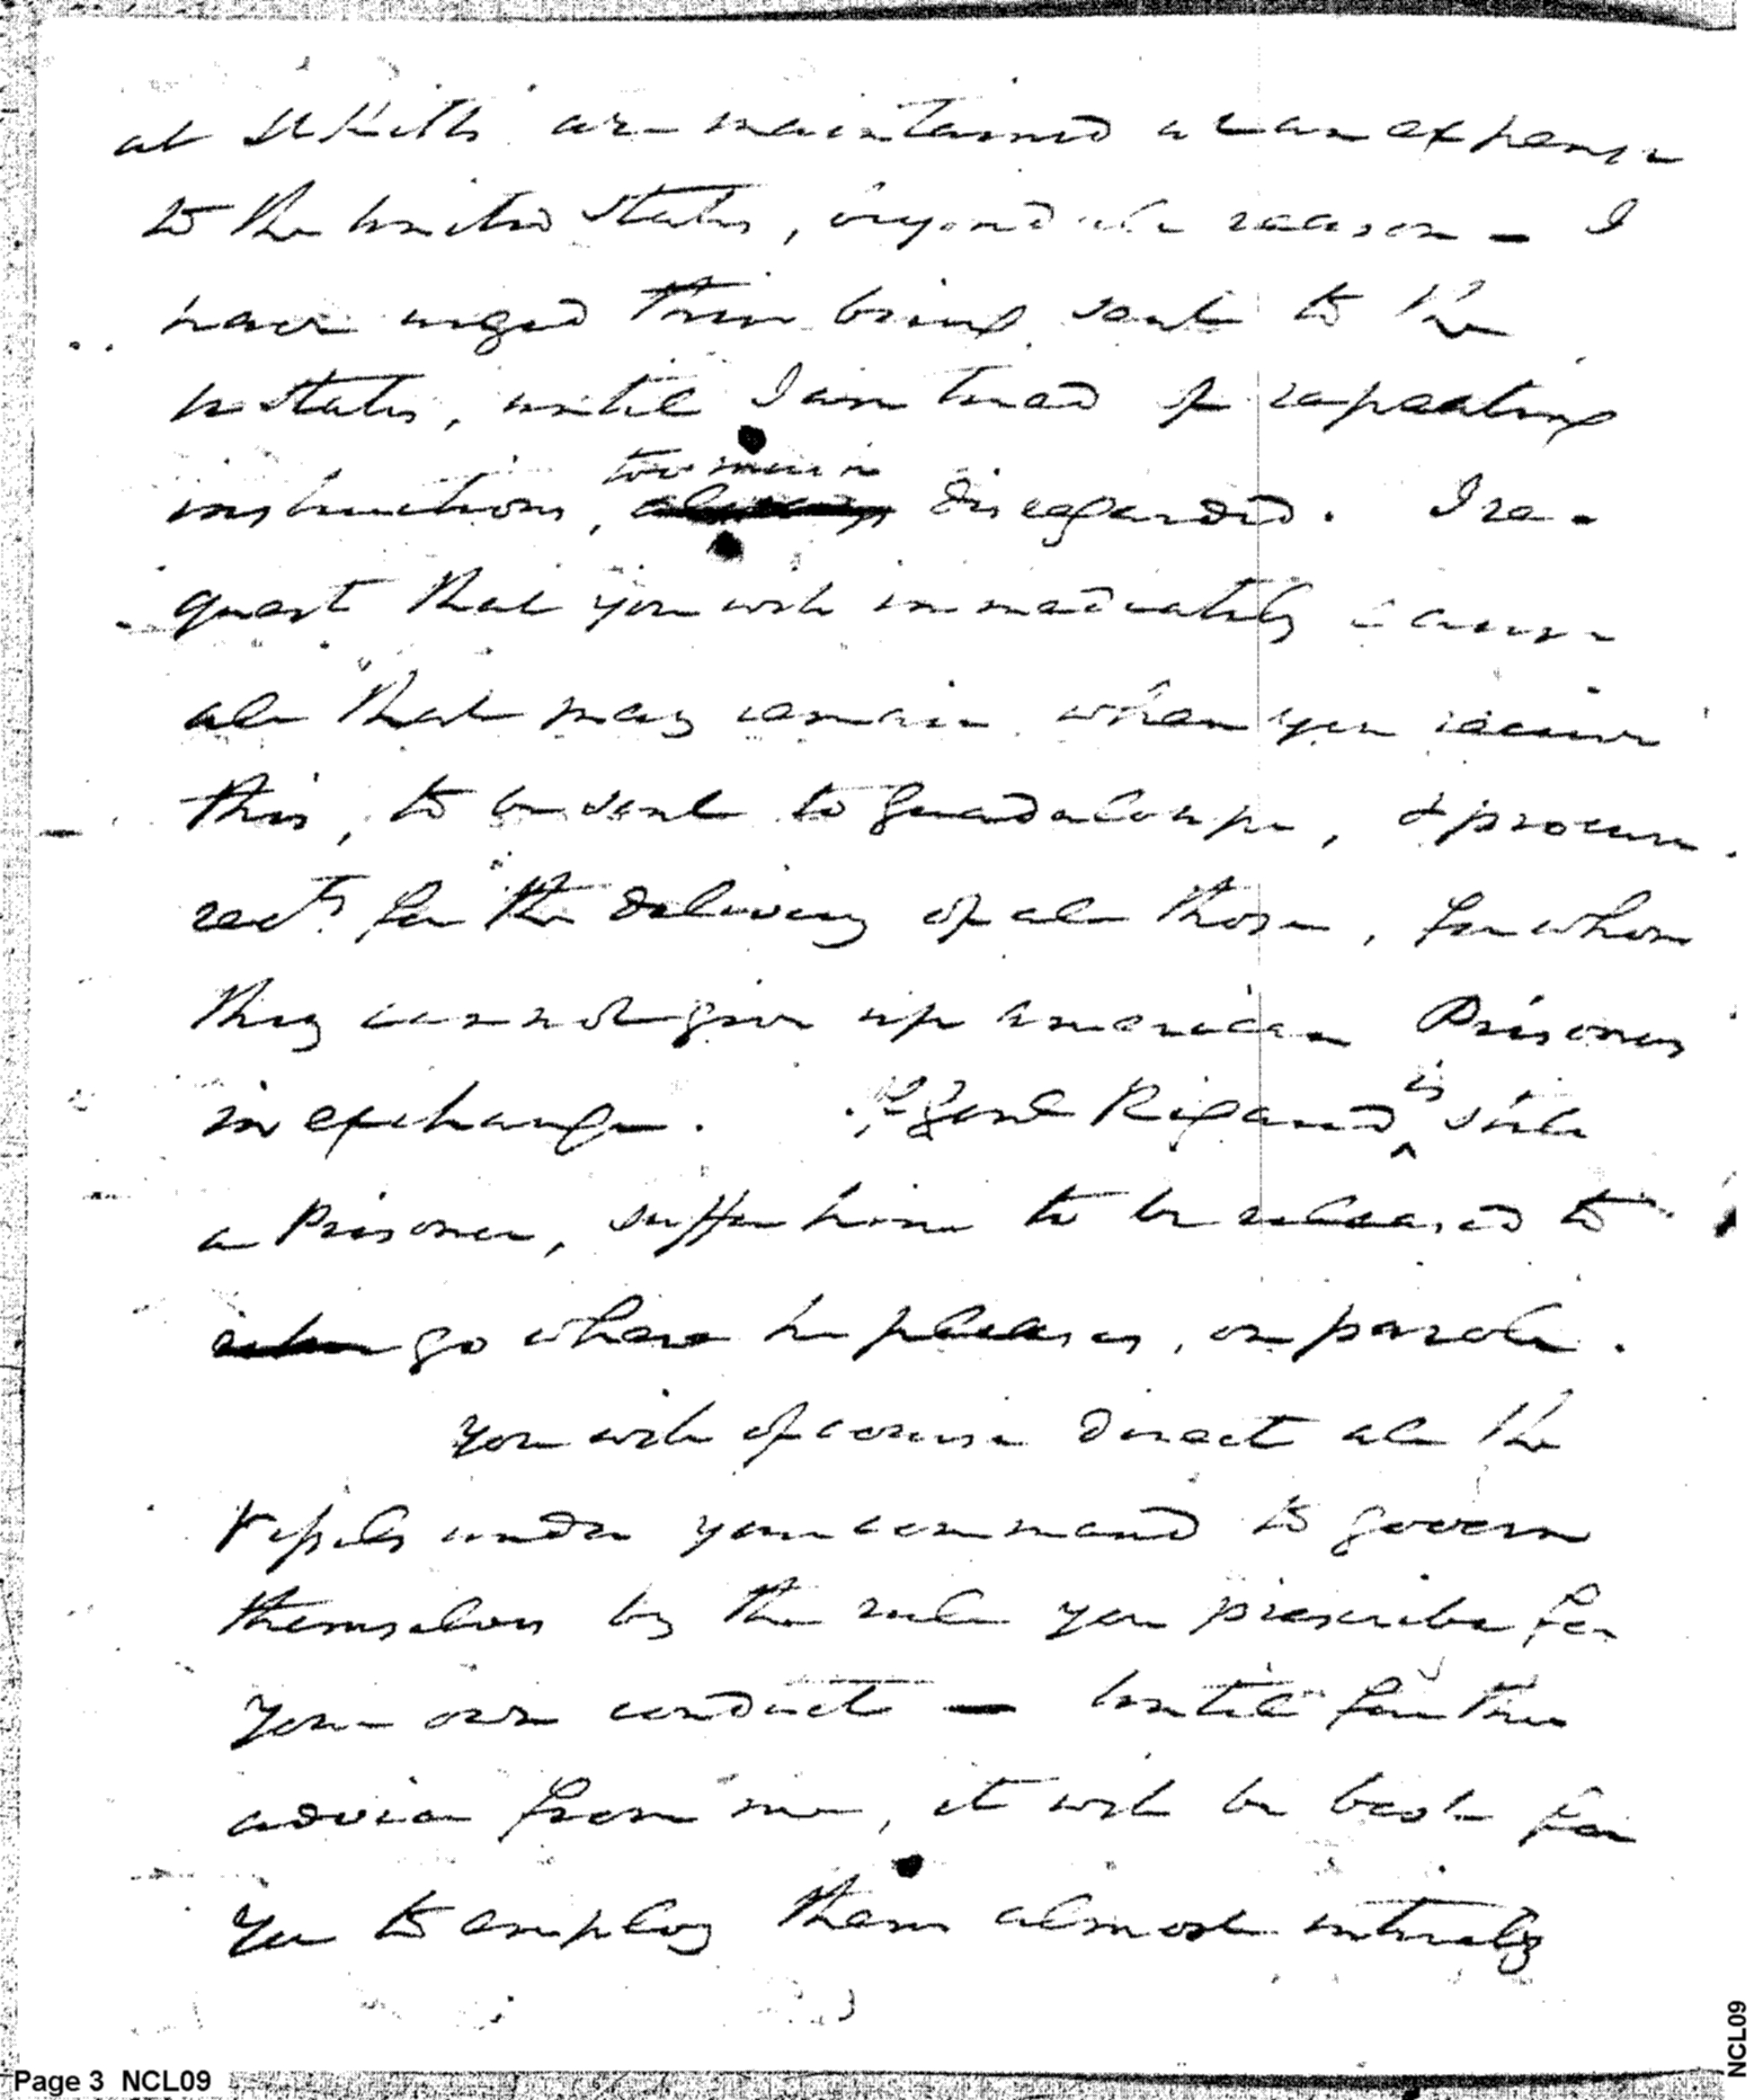 at St Kitts are maintained at an expense
to the United States, beyond all reason — I
have urged their being sent to the
U States, until I am tired of repeating
instructions, too much always disregarded. I re-
quest that you will immediately cause
all that may remain when you receive
this, to be sent to Guadaloupe, & procure
rects for the delivery of all those, for whom
they cannot give up American Prisoners
in exchange. If Genl Rigaud is still
a Prisoner, suffer him to be released to
go where he pleases, on parole.
You will of course direct all the
Vessels under your command to govern
themselves by the rule you prescribe for
your own conduct — Until further
advice from me, it will be best for
you to employ them almost entirely
Page 3 NCL09
NCL09